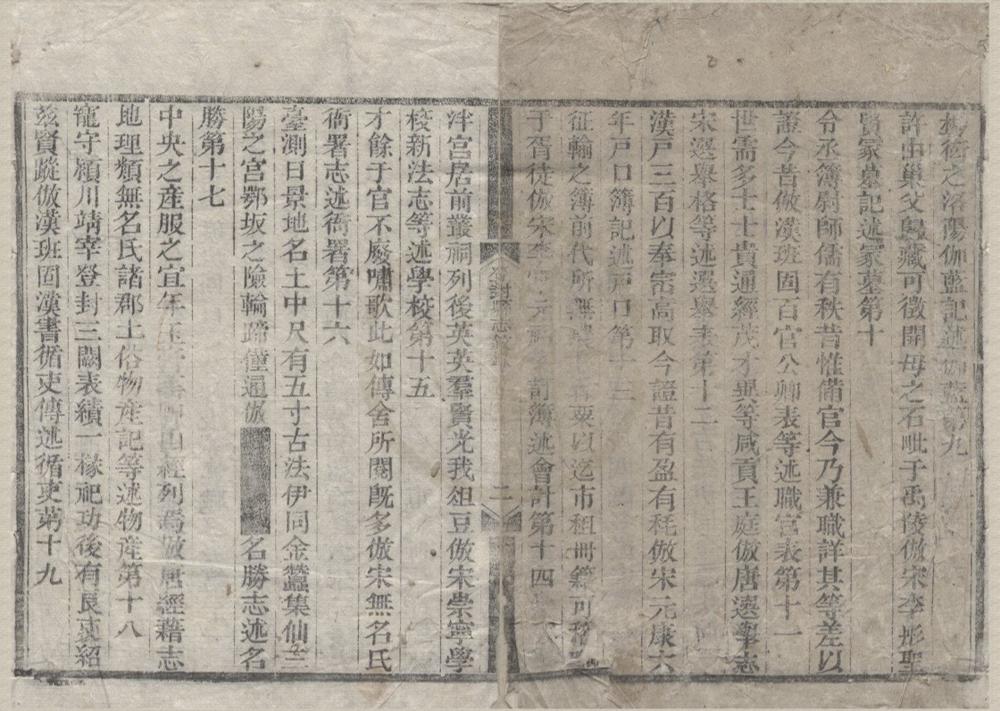 楊衒之洛陽伽藍記述伽藍第九
許由巢父龜藏可徵開母之石毗于禹陵倣宋李彤聖
賢冢墓記述冢墓第十
令丞簿尉師儒有秩昔惟備官今乃兼職詳其等差以
證今昔倣漢班固百官公卿表等述職官表第十一
世需多士士貴通經茂才異等咸貢王庭倣唐選舉志
宋選舉格等述選舉表第十二
漢戸三百以奉崇高取今證昔有盈有秏倣宋元康六
年戸口簿記述戸口第十三
征輸之簿前代所無 粟以迄市租冊籍可稽
于胥徒倣宋李 元 簿述會計第十四
登封縣志
二
泮宮居前叢祠列後英英羣賢光我俎豆倣宋崇寧學
校新法志等述學校第十五
才餘于官不廢嘯歌此如傳舍所閱旣多倣宋無名氏
衙署志述衙署第十六
臺測日景地名土中尺有五寸古法伊同金蠶集仙三
陽之宮鄂坂之險輪蹄僅通倣 名勝志述名
勝第十七
中央之產服之宜年玉 山經列焉倣唐經藉志
地理類無名氏諸郡土俗物產記等述物產第十八
寵守潁川靖宰登封三闕表績一椽祀功後有良吏紹
茲賢蹤倣漢班固漢書循吏傳述循吏苐十九